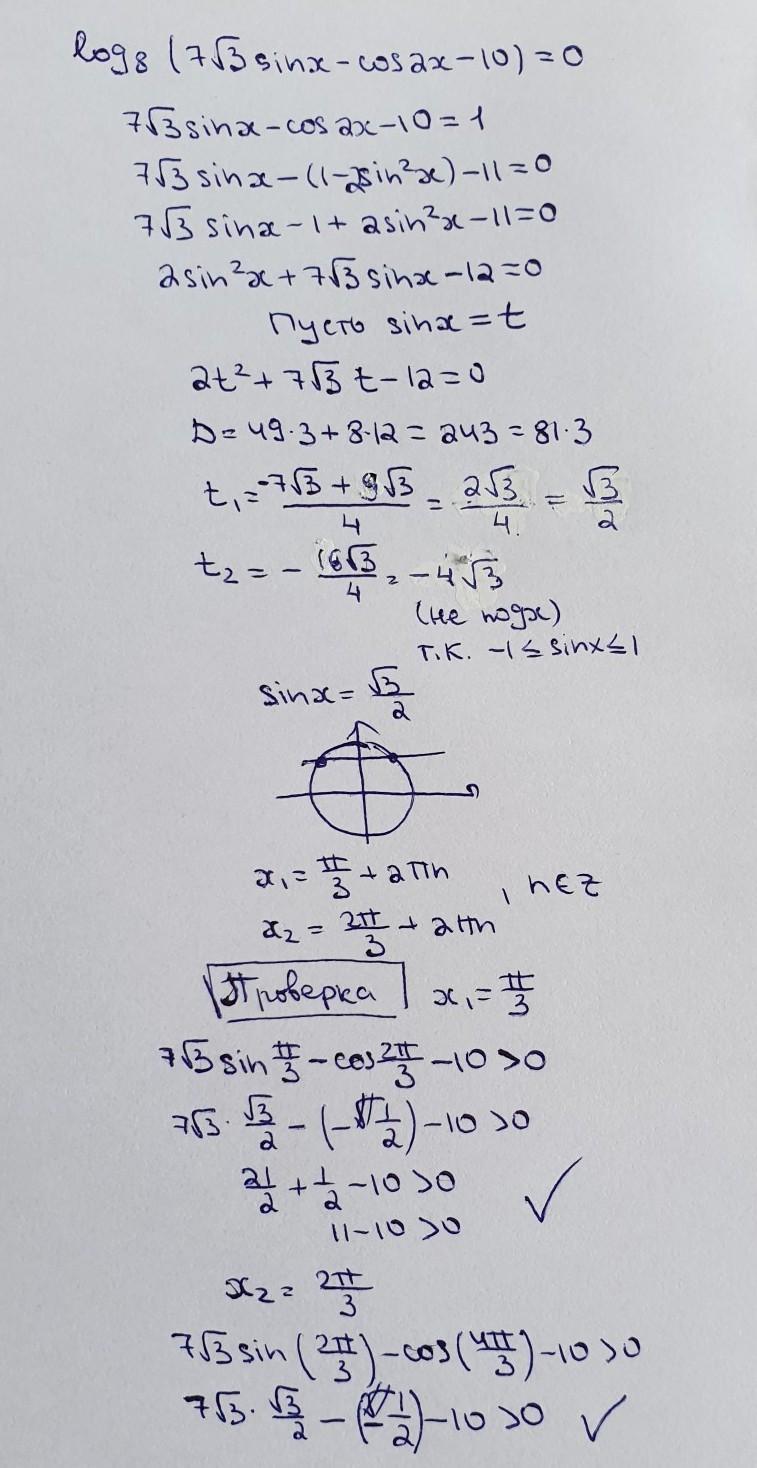 log₈ (7√3 sinx - cos2x - 10) = 0
7√3 sinx - cos2x - 10 = 1
7√3 sinx - (1 - 2sin²x) - 11 = 0
7√3 sinx - 1 + 2sin²x - 11 = 0
2sin²x + 7√3 sinx - 12 = 0
Пусть sinx = t
2t² + 7√3 t - 12 = 0
D = 49·3 + 8·12 = 243 = 81·3
t₁ = (-7√3 + 9√3)/4 = 2√3/4 = √3/2
t₂ = - 16√3/4 = -4√3
(не подх)
т.к. -1 ≤ sinx ≤ 1
sinx = √3/2
x₁ = π/3 + 2πn
, n∈Z
x₂ = 2π/3 + 2πn
Проверка x₁ = π/3
7√3 sin π/3 - cos 2π/3 - 10 > 0
7√3 · √3/2 - (- 1/2) - 10 > 0
21/2 + 1/2 - 10 > 0 ✓
11 - 10 > 0
x₂ = 2π/3
7√3 sin (2π/3) - cos (4π/3) - 10 > 0
7√3 · √3/2 - (- 1/2) - 10 > 0 ✓